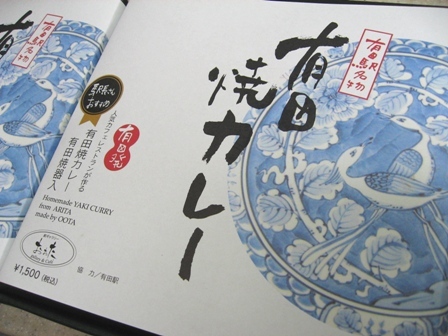 有田
焼カレー
有田駅名物
駅長さん
おすすめ
有田発
人気カフェレストランが作る
有田焼カレー
有田焼器入
Homemade YAKI CURRY
from ARITA
made by OOTA
おおた
Gallery & Café
¥1,500(税込)
協 力／有田駅
有
有田駅名物